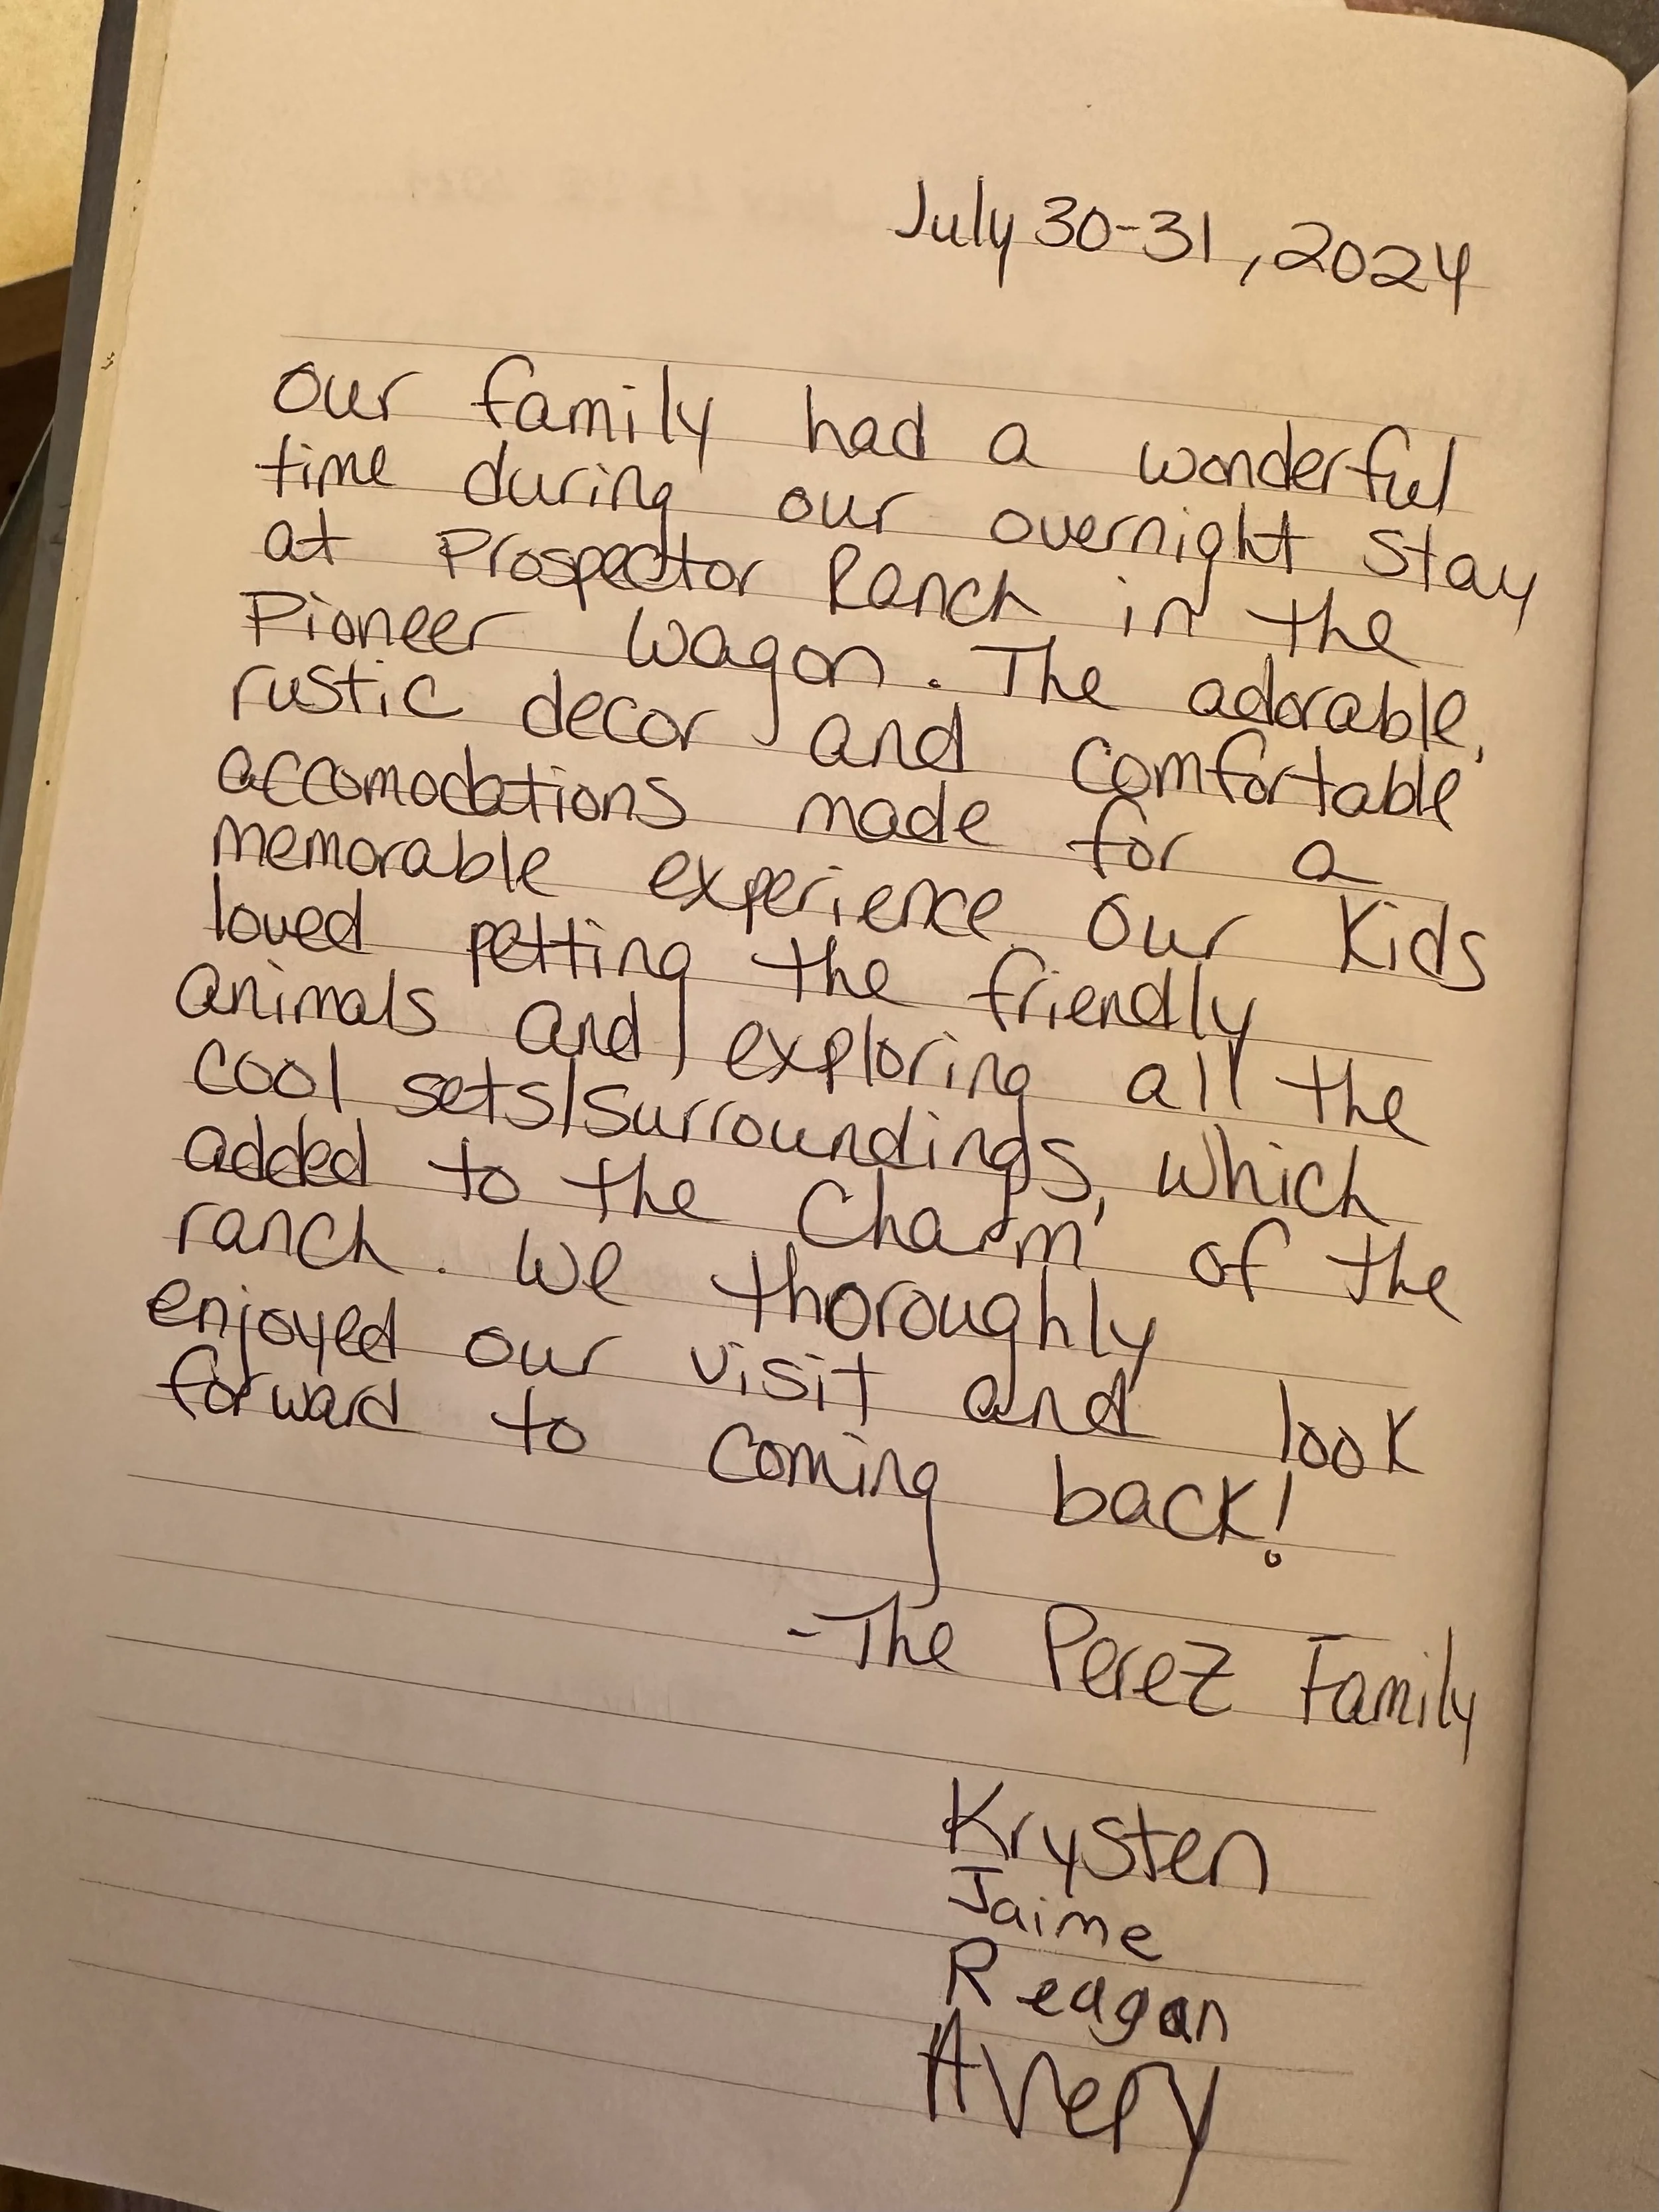 July 30-31, 2024
Our family had a wonderful
time during our overnight stay
at Prospector Ranch in the
Pioneer Wagon. The adorable,
rustic decor and comfortable
accomodations made for a
memorable experience. Our kids
loved petting the friendly
animals and exploring all the
cool sets/surroundings, which
added to the charm of the
ranch. We thoroughly
enjoyed our visit and look
forward to coming back!
-The Perez Family
Krysten
Jaime
Reagan
Avery